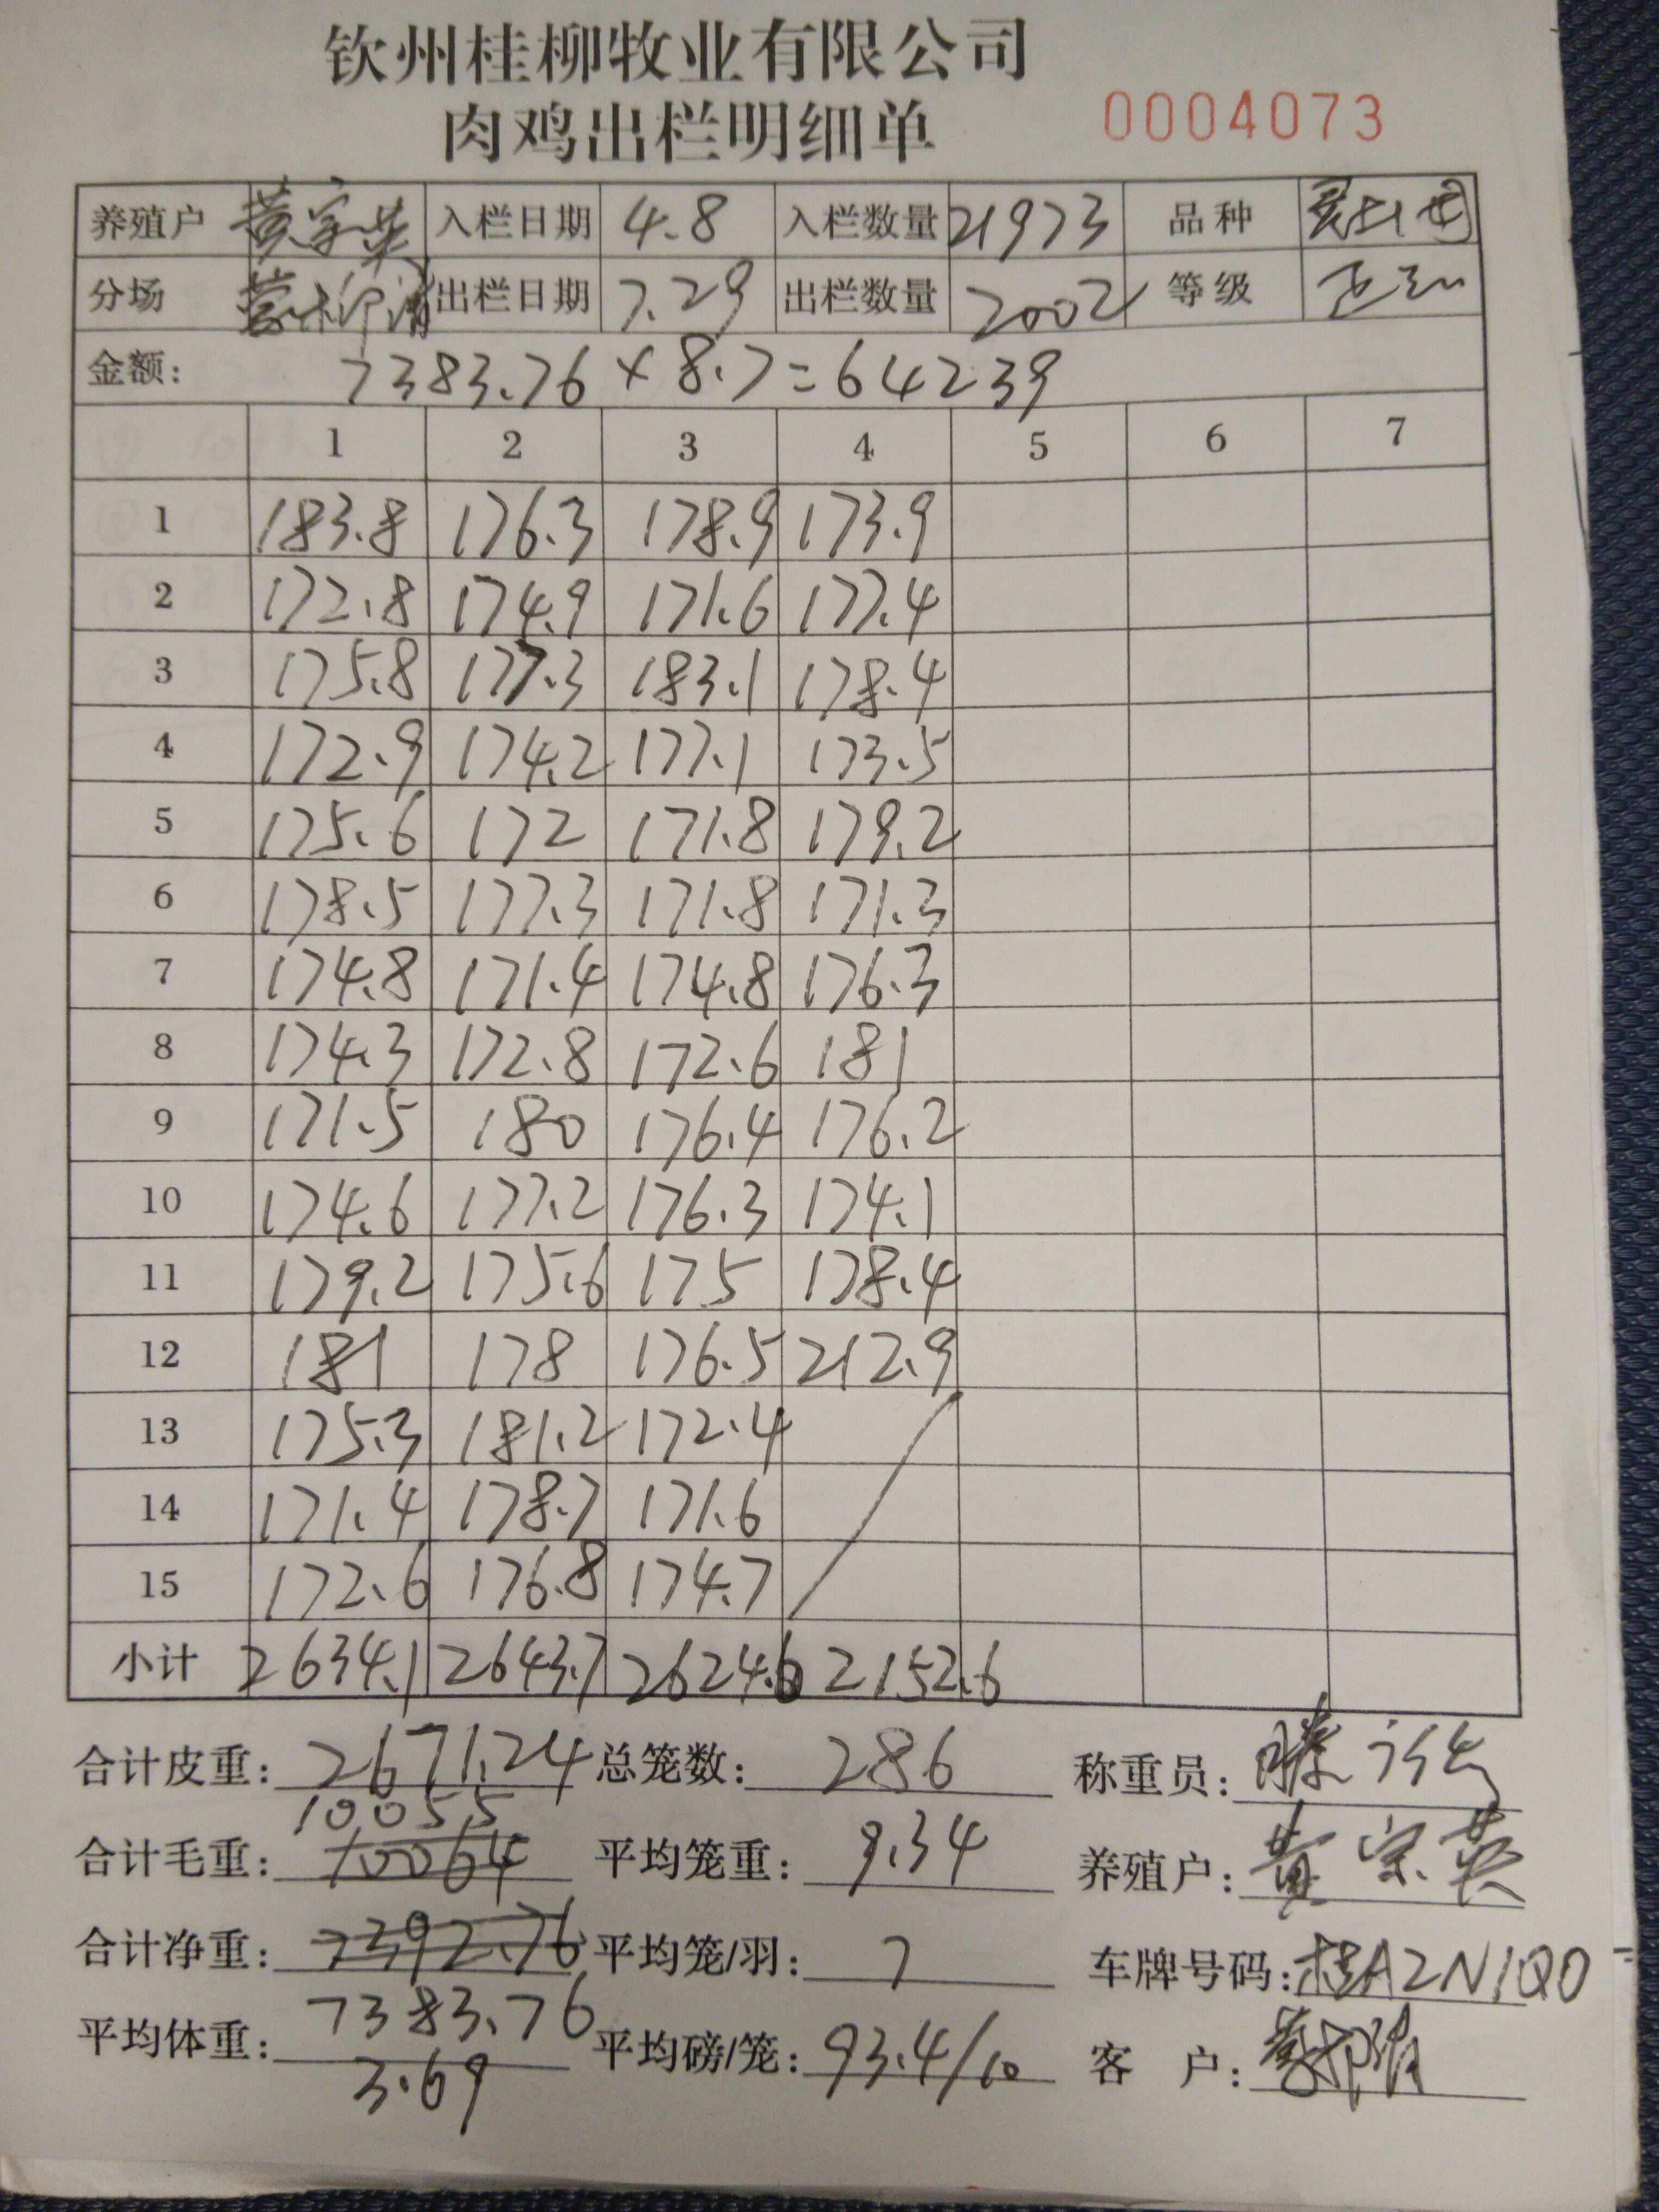 钦州桂柳牧业有限公司
肉鸡出栏明细单 0004073
养殖户 黄宗英 入栏日期 4.8 入栏数量 21973 品种
分场 出栏日期 7.29 出栏数量 2002 等级
金额: 7383.76 × 8.7 = 64239
1 2 3 4 5 6 7
1 183.8 176.3 178.9 173.9
2 172.8 174.9 171.6 177.4
3 175.8 177.3 183.1 178.4
4 172.9 174.2 177.1 173.5
5 175.6 172 171.8 179.2
6 178.5 177.3 171.8 171.3
7 174.8 171.4 174.8 176.3
8 174.3 172.8 172.6 181
9 171.5 180 176.4 176.2
10 174.6 177.2 176.3 174.1
11 179.2 175.6 175 178.4
12 181 178 176.5 212.9
13 175.3 181.2 172.4
14 171.4 178.7 171.6
15 172.6 176.8 174.7
小计 2634.1 2643.7 2624.6 2152.6
合计皮重: 2671.24 总笼数: 286 称重员:
10055
合计毛重: 10064 平均笼重: 9.34 养殖户: 黄宗英
合计净重: 7392.76 平均笼/羽: 7 车牌号码: 桂A2N1Q0
7383.76
平均体重: 3.69 平均磅/笼: 93.4/10 客 户: